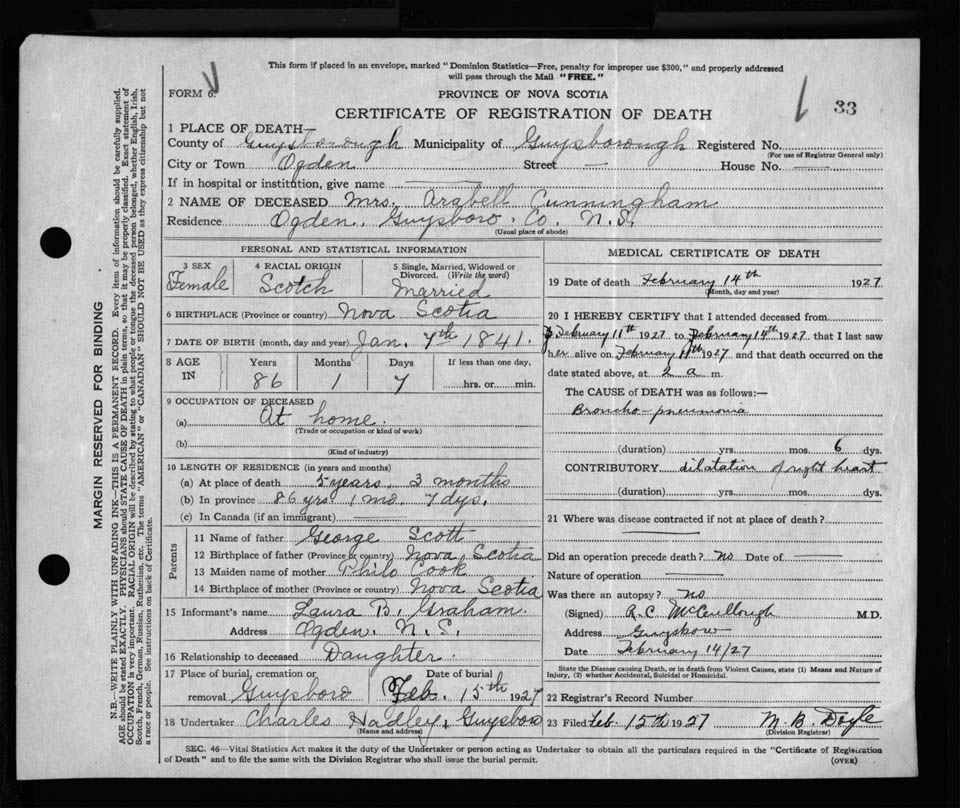 This form if placed in an envelope, marked "Dominion Statistics—Free, penalty for improper use $300," and properly addressed
will pass through the Mail "FREE."
FORM 6.
PROVINCE OF NOVA SCOTIA
33
CERTIFICATE OF REGISTRATION OF DEATH
1 PLACE OF DEATH—
County of Guysborough Municipality of Guysborough Registered No.
(For use of Registrar General only)
City or Town Ogden Street — House No. —
If in hospital or institution, give name —
2 NAME OF DECEASED Mrs. Arabell Cunningham
Residence Ogden, Guysboro. Co. N.S.
(Usual place of abode)
PERSONAL AND STATISTICAL INFORMATION
3 SEX Female
4 RACIAL ORIGIN Scotch
5 Single, Married, Widowed or Divorced. (Write the word) Married
6 BIRTHPLACE (Province or country) Nova Scotia
7 DATE OF BIRTH (month, day and year) Jan. 7th 1841.
8 AGE IN Years 86 Months 1 Days 7 If less than one day, hrs. or min.
9 OCCUPATION OF DECEASED
(a) At home.
(Trade or occupation or kind of work)
(b)
(Kind of industry)
10 LENGTH OF RESIDENCE (in years and months)
(a) At place of death 5 years, 3 months
(b) In province 86 yrs 1 mo. 7 dys.
(c) In Canada (if an immigrant) —
Parents
11 Name of father George Scott
12 Birthplace of father (Province or country) Nova Scotia
13 Maiden name of mother Philo Cook
14 Birthplace of mother (Province or country) Nova Scotia
15 Informant's name Laura B. Graham.
Address Ogden. N.S.
16 Relationship to deceased Daughter.
17 Place of burial, cremation or removal Guysboro Date of burial Feb. 15th 1927
18 Undertaker Charles Hadley, Guysboro
(Name and address)
MEDICAL CERTIFICATE OF DEATH
19 Date of death February 14th 1927
(Month, day and year)
20 I HEREBY CERTIFY that I attended deceased from
February 11th 1927 to February 14th 1927 that I last saw
her alive on February 11th 1927 and that death occurred on the
date stated above, at 2 a m.
The CAUSE of DEATH was as follows:—
Broncho-pneumonia
(duration) yrs. mos. 6 dys.
CONTRIBUTORY dilatation of right heart
(duration) yrs. mos. dys.
21 Where was disease contracted if not at place of death?
Did an operation precede death? no Date of
Nature of operation —
Was there an autopsy? no
(Signed) R.C. McCullough M.D.
Address Guysboro
Date February 14/27
State the Disease causing Death, or in death from Violent Causes, state (1) Means and Nature of
Injury, (2) whether Accidental, Suicidal or Homicidal.
22 Registrar's Record Number
23 Filed Feb. 15th 1927 M.B. Doyle
(Division Registrar)
SEC. 46—Vital Statistics Act makes it the duty of the Undertaker or person acting as Undertaker to obtain all the particulars required in the "Certificate of Registration
of Death" and to file the same with the Division Registrar who shall issue the burial permit.
(OVER)
MARGIN RESERVED FOR BINDING
N.B.—WRITE PLAINLY WITH UNFADING INK—THIS IS A PERMANENT RECORD. Every item of information should be carefully supplied.
AGE should be stated EXACTLY. PHYSICIANS should STATE CAUSE OF DEATH in plain terms, so that it may be properly classified. Exact statement of
OCCUPATION is very important. RACIAL ORIGIN will be described by stating to what people or tongue the deceased person belonged, whether English, Irish,
Scotch, French, German, Russian, Ruthenian, etc. The terms "AMERICAN" or "CANADIAN" SHOULD NOT BE USED as they express citizenship but not
a race or people. See instructions on back of Certificate.